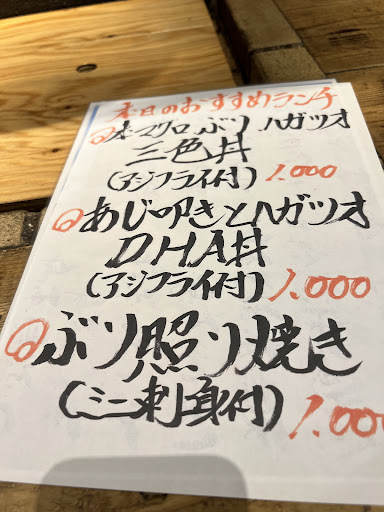 本日のおすすめランチ
本マグロ ぶり ハガツオ
三色丼
(アジフライ付) 1.000
あじ叩きとハガツオ
DHA丼
(アジフライ付) 1.000
ぶり照り焼き
(ミニ刺身付) 1.000